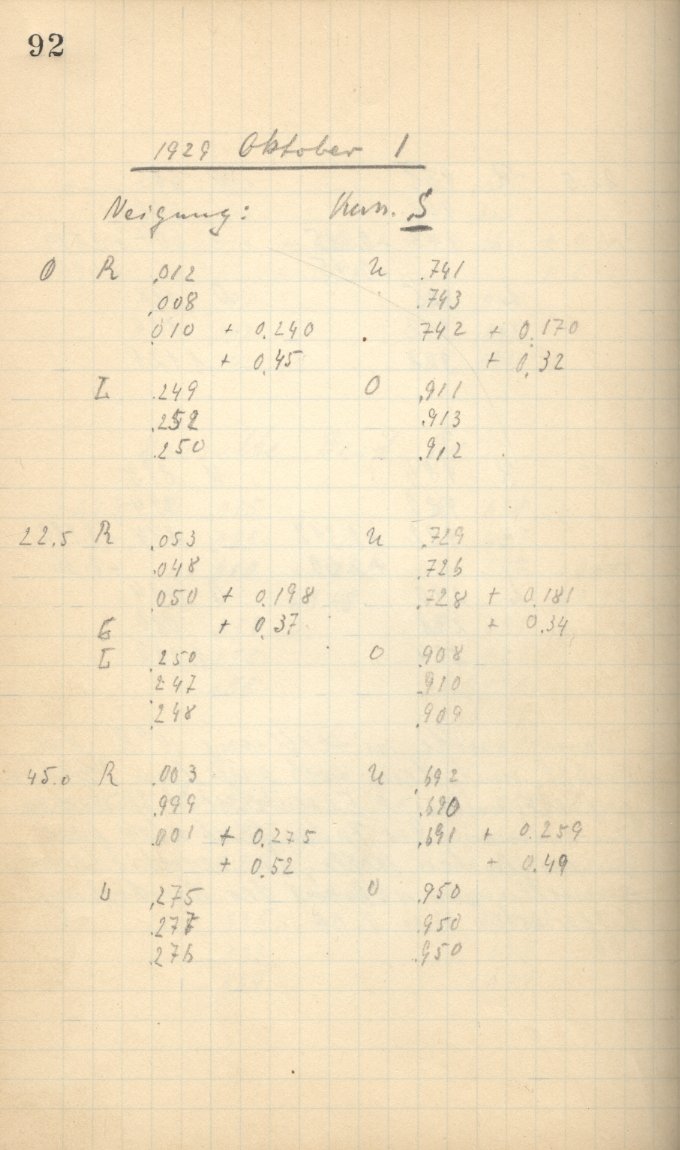 92
1929 Oktober 1
Neigung: S
0 R .012 u .741
.008 .743
.010 + 0.240 742 + 0.170
+ 0.45 + 0.32
L .249 O .911
.252 .913
.250 .912
22.5 R .053 u .729
.048 .726
.050 + 0.198 .728 + 0.181
+ 0.37 + 0.34
L .250 O .908
247 .910
.248 .909
45.0 R .003 u .692
.999 .690
.001 + 0.275 .691 + 0.259
+ 0.52 + 0.49
L .275 O .950
.277 .950
.276 .950